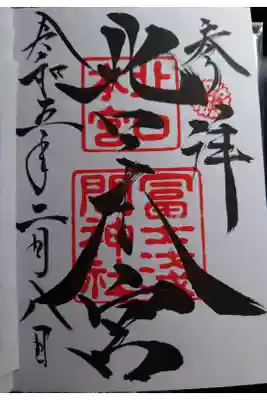 参拝
北口本宮
北口
本宮
冨士淺
間神社
令和五年二月八日